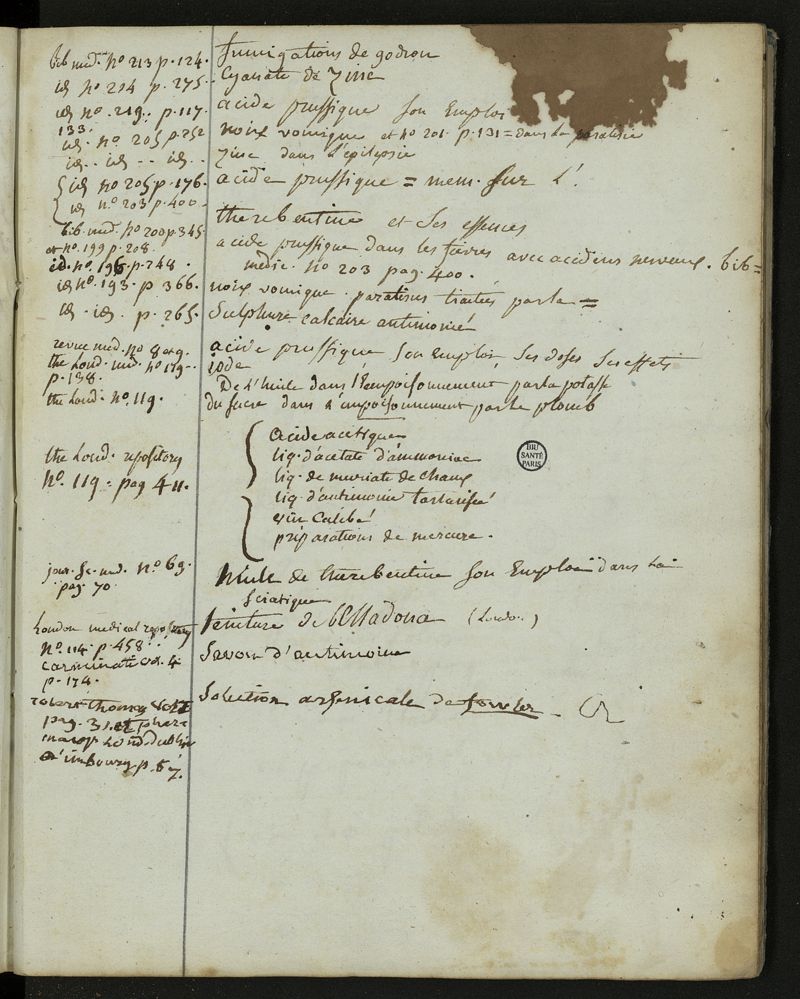 bib med. no 213 p. 124. fumigations de godron
id no 214 p. 275. Cyanate de Zinc
id no. 219. p. 117. acide prussique son Emploi
133.
id. no. 205 p. 252 noix vomique et no 201 p. 131 = dans la paralisie
id.. id.. id.. Zinc dans l'épilepsie
id no 205 p. 176. acide prussique = mem. sur l'.
id no. 203 p. 400.
bib. med. no 200 p 345 therebentine et ses essences
et no. 199 p. 208. acide prussique dans les fièvres avec accidens nerveux. bib=
id. no. 196. p. 248. medic. no 203 pag. 400.
id no. 193. p 366. noix vomique. paralisies traitées par la =
id. id. p. 265. Sulphure calcaire antimonié
revue med. no 8 et 9. acide prussique son Emploi, ses doses ses effets
the Lond. med. no 179. iode
p. 138. De l'huile dans l'Empoisonnement par la potasse
the Lond. no. 119. du sucre dans l'empoisonnement par le plomb
acide acétique
liq. d'acétate d'ammoniac
the Lond. repository liq. de muriate de chaux
no. 119. pag 411. liq. d'antimoine tartarisé
vin Calibé
préparations de mercure.
jour. sc. med. no 69. huile de therebentine son Emploi dans la
pag. 70. sciatique
London medical repository teinture de belladona (London.)
no. 114. p. 458
carminati vol. 4 Savon d'antimoine
p. 174.
robert thomas Solution arsenicale de fowler.
pag. 31. et phar
Lond. Dublin
d'Eimbourg p. 67.
BIU
SANTÉ
PARIS